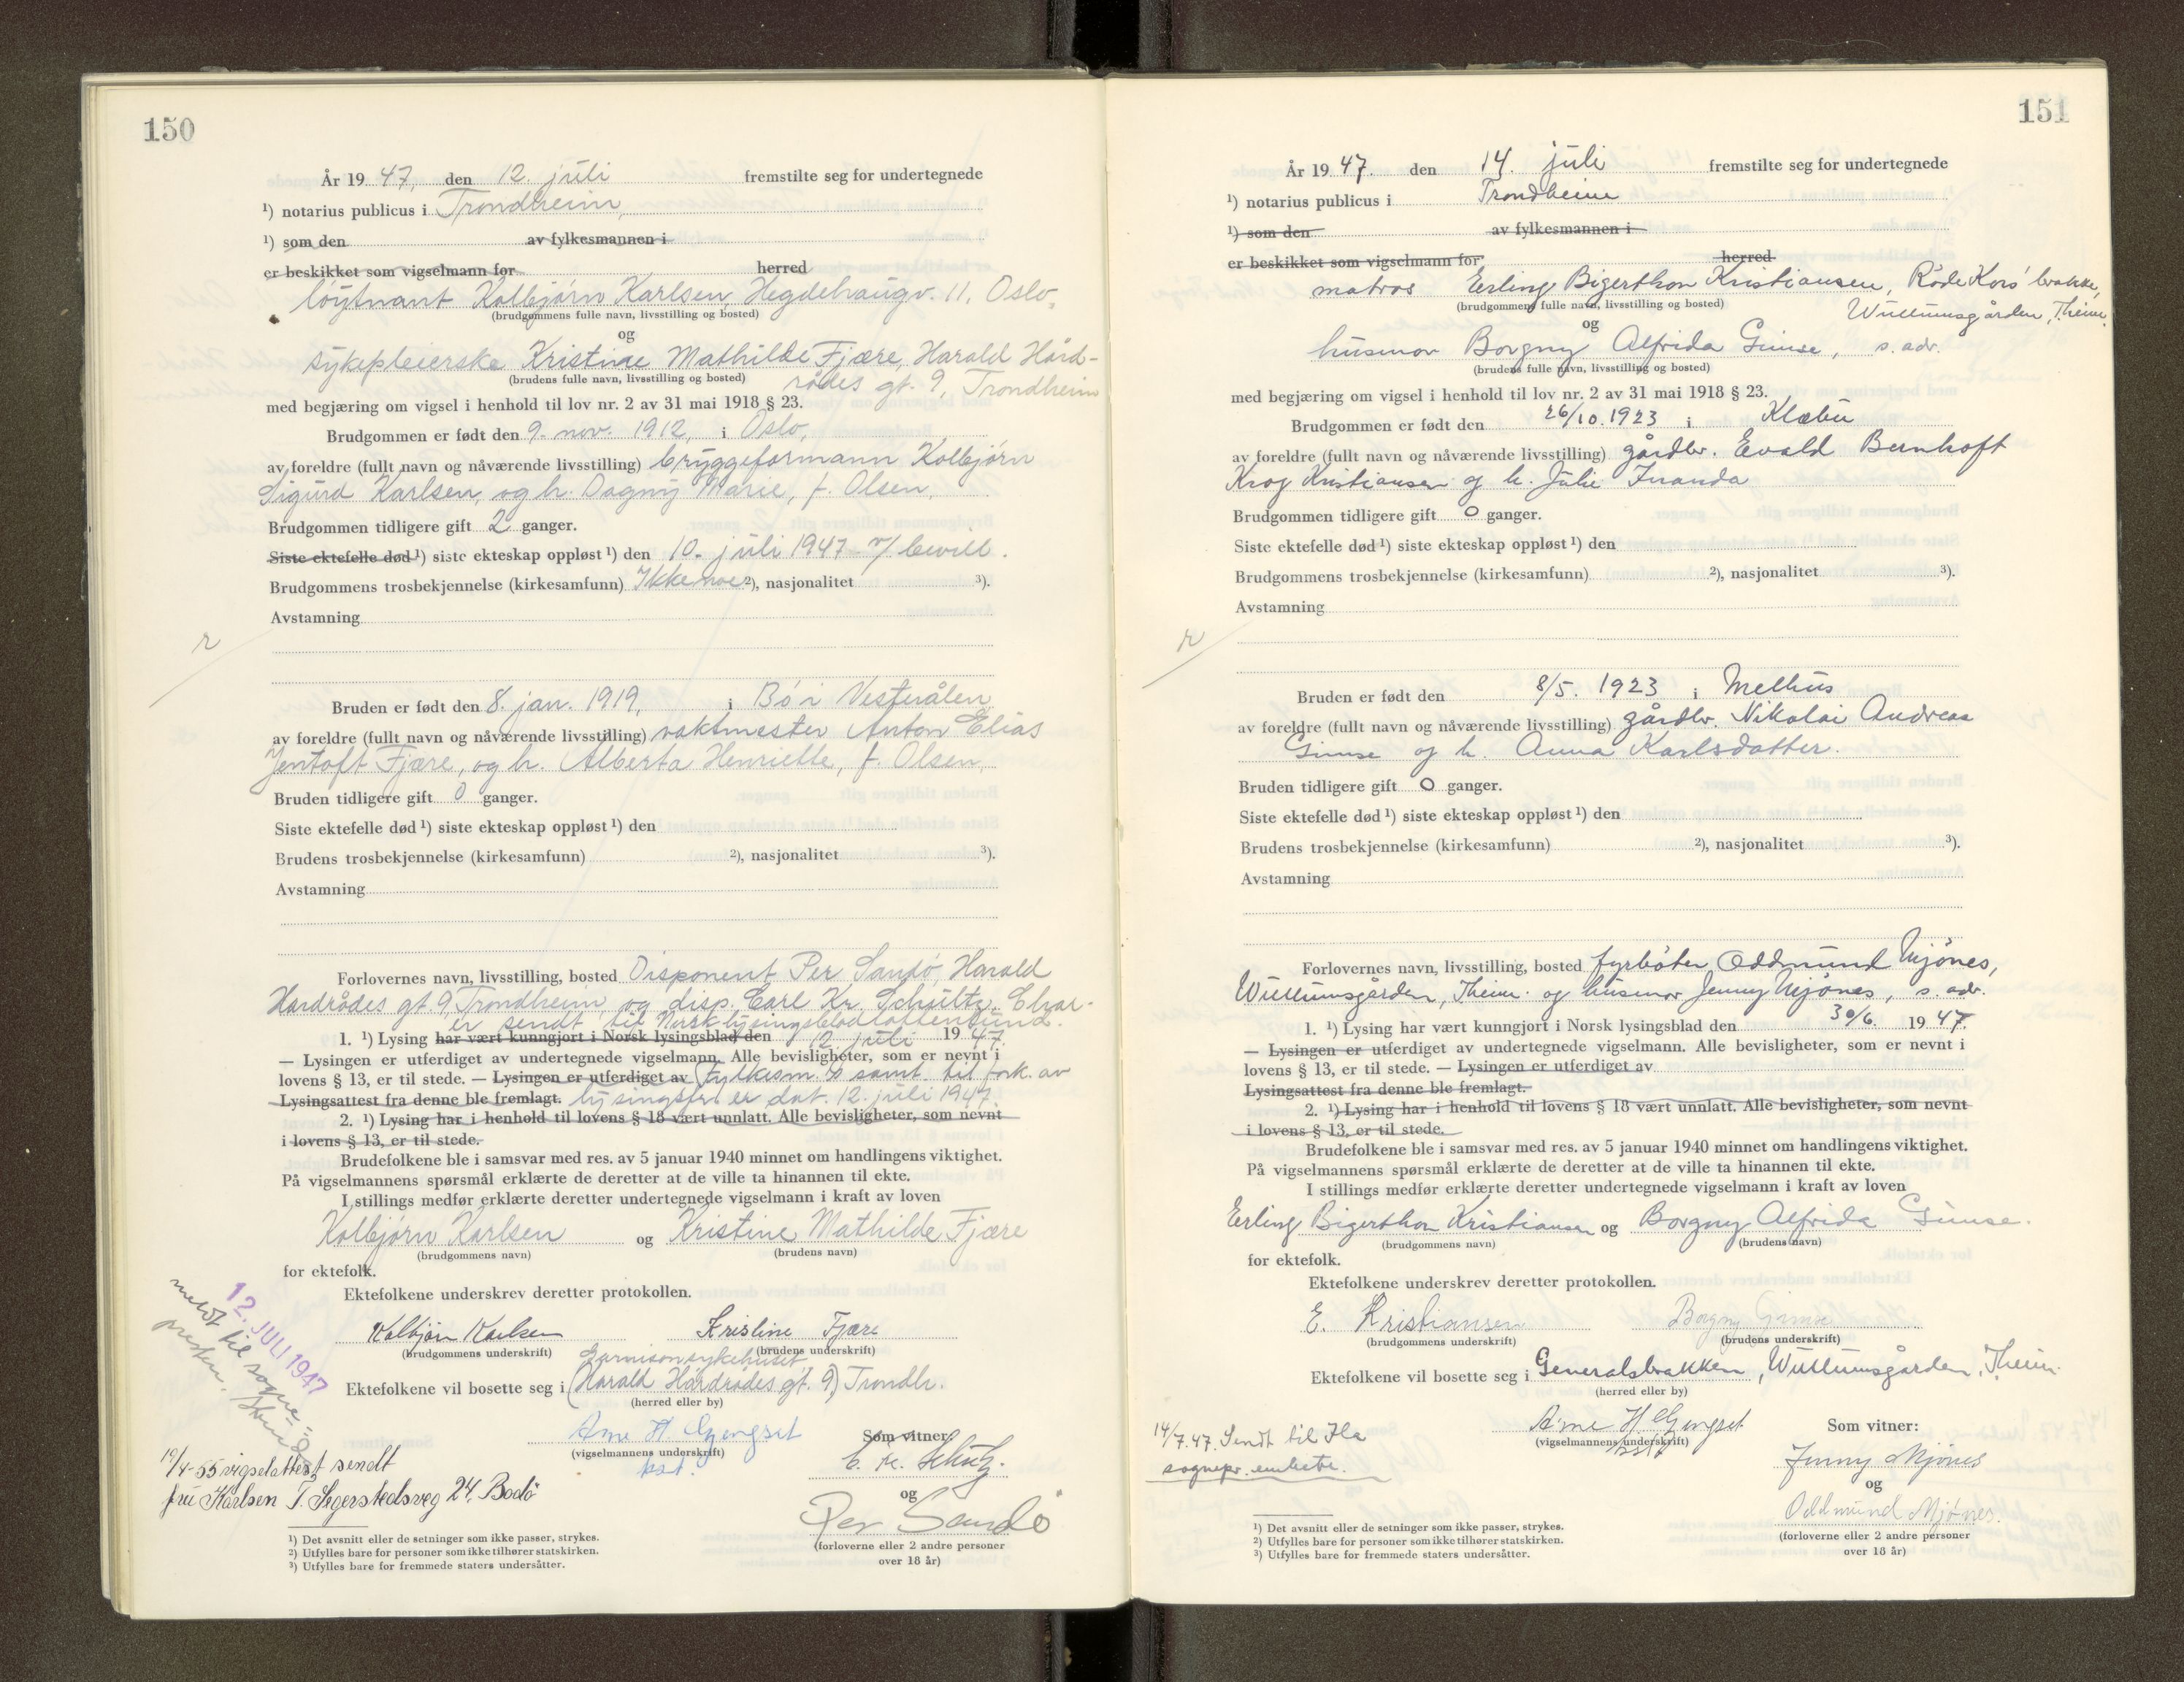 150
År 19 47, den 12. juli fremstilte seg for undertegnede
¹) notarius publicus i Trondheim,
¹) som den av fylkesmannen i
er beskikket som vigselmann for herred
løytnant Kolbjørn Karlsen, Hegdehaugv. 11, Oslo,
(brudgommens fulle navn, livsstilling og bosted)
og
sykepleierske Kristine Mathilde Fjære, Harald Hård-
(brudens fulle navn, livsstilling og bosted) rådes gt. 9, Trondheim
med begjæring om vigsel i henhold til lov nr. 2 av 31 mai 1918 § 23.
Brudgommen er født den 9. nov. 1912, i Oslo,
av foreldre (fullt navn og nåværende livsstilling) bryggeformann Kolbjørn
Sigurd Karlsen, og h. Dagny Marie, f. Olsen,
Brudgommen tidligere gift 2 ganger.
Siste ektefelle død ¹) siste ekteskap oppløst ¹) den 10. juli 1947 v/ bevill.
Brudgommens trosbekjennelse (kirkesamfunn) Ikke noe ²), nasjonalitet ³).
Avstamning
r
Bruden er født den 8. jan. 1919, i Bø i Vesterålen
av foreldre (fullt navn og nåværende livsstilling) vaktmester Anton Elias
Jentoft Fjære, og h. Alberta Henriette, f. Olsen,
Bruden tidligere gift 0 ganger.
Siste ektefelle død ¹) siste ekteskap oppløst ¹) den
Brudens trosbekjennelse (kirkesamfunn) ²), nasjonalitet ³).
Avstamning
Forlovernes navn, livsstilling, bosted Disponent Per Sandø, Harald
Hardrådes gt. 9, Trondheim, og disp. Carl Kr. Schultz, Char-
er sendt til Norsk lysingsblad lottenlund.
1. ¹) Lysing har vært kunngjort i Norsk lysingsblad den 12. juli 19 47.
— Lysingen er utferdiget av undertegnede vigselmann. Alle bevisligheter, som er nevnt i
lovens § 13, er til stede. — Lysingen er utferdiget av fylkesm. s samt. til fork. av
Lysingsattest fra denne ble fremlagt. lysingsfri er dat. 12. juli 1947.
2. ¹) Lysing har i henhold til lovens § 18 vært unnlatt. Alle bevisligheter, som nevnt
i lovens § 13, er til stede.
Brudefolkene ble i samsvar med res. av 5 januar 1940 minnet om handlingens viktighet.
På vigselmannens spørsmål erklærte de deretter at de ville ta hinannen til ekte.
I stillings medfør erklærte deretter undertegnede vigselmann i kraft av loven
Kolbjørn Karlsen og Kristine Mathilde Fjære
(brudgommens navn) (brudens navn)
for ektefolk.
Ektefolkene underskrev deretter protokollen.
12. JULI 1947
meldt til sogne-
presten.
Kolbjørn Karlsen Kristine Fjære
(brudgommens underskrift) (brudens underskrift)
Garnisonsykehuset
Ektefolkene vil bosette seg i (Harald Hårdrådes gt. 9) Trondh.
(herred eller by)
Arne H Gjengset Som vitner
(vigselmannens underskrift) C. Kr. Schultz.
og
19/4-55 vigselattest sendt
fru Karlsen T. Segerstedsveg 24, Bodø
Per Sandø
(forloverne eller 2 andre personer
over 18 år)
¹) Det avsnitt eller de setninger som ikke passer, strykes.
²) Utfylles bare for personer som ikke tilhører statskirken.
³) Utfylles bare for fremmede staters undersåtter.
151
År 19 47. den 14. juli fremstilte seg for undertegnede
¹) notarius publicus i Trondheim
¹) som den av fylkesmannen i
er beskikket som vigselmann for herred
matros Erling Bigerthon Kristiansen, Røde Kors' brakke,
(brudgommens fulle navn, livsstilling og bosted) Wullumsgården, Theim.
og
husmor Borgny Alfrida Gimse, s. adr.
(brudens fulle navn, livsstilling og bosted)
med begjæring om vigsel i henhold til lov nr. 2 av 31 mai 1918 § 23.
Brudgommen er født den 26/10. 1923 i Klæbu
av foreldre (fullt navn og nåværende livsstilling) gårdbr. Evald Bernhoft
Krog Kristiansen og h. Julie Iranda
Brudgommen tidligere gift 0 ganger.
Siste ektefelle død ¹) siste ekteskap oppløst ¹) den
Brudgommens trosbekjennelse (kirkesamfunn) ²), nasjonalitet ³).
Avstamning
r
Bruden er født den 8/5. 1923 i Melhus
av foreldre (fullt navn og nåværende livsstilling) gårdbr. Nikolai Andreas
Gimse og h. Anna Karlsdatter.
Bruden tidligere gift 0 ganger.
Siste ektefelle død ¹) siste ekteskap oppløst ¹) den
Brudens trosbekjennelse (kirkesamfunn) ²), nasjonalitet ³).
Avstamning
Forlovernes navn, livsstilling, bosted fyrbøter Oddmund Mjønes,
Wullumsgården, Theim. og husmor Jenny Mjønes, s. adr.
1. ¹) Lysing har vært kunngjort i Norsk lysingsblad den 30/6. 19 47.
— Lysingen er utferdiget av undertegnede vigselmann. Alle bevisligheter, som er nevnt i
lovens § 13, er til stede. — Lysingen er utferdiget av
Lysingsattest fra denne ble fremlagt.
2. ¹) Lysing har i henhold til lovens § 18 vært unnlatt. Alle bevisligheter, som nevnt
i lovens § 13, er til stede.
Brudefolkene ble i samsvar med res. av 5 januar 1940 minnet om handlingens viktighet.
På vigselmannens spørsmål erklærte de deretter at de ville ta hinannen til ekte.
I stillings medfør erklærte deretter undertegnede vigselmann i kraft av loven
Erling Bigerthon Kristiansen og Borgny Alfrida Gimse.
(brudgommens navn) (brudens navn)
for ektefolk.
Ektefolkene underskrev deretter protokollen.
E. Kristiansen Borgny Gimse
(brudgommens underskrift) (brudens underskrift)
Ektefolkene vil bosette seg i Generalsbrakken, Wullumsgården, Theim.
(herred eller by)
14/7.47. Sendt til Ila
sognepr. embete.
Arne H Gjengset Som vitner:
(vigselmannens underskrift)
Jenny Mjønes
og
Oddmund Mjønes.
(forloverne eller 2 andre personer
over 18 år)
¹) Det avsnitt eller de setninger som ikke passer, strykes.
²) Utfylles bare for personer som ikke tilhører statskirken.
³) Utfylles bare for fremmede staters undersåtter.